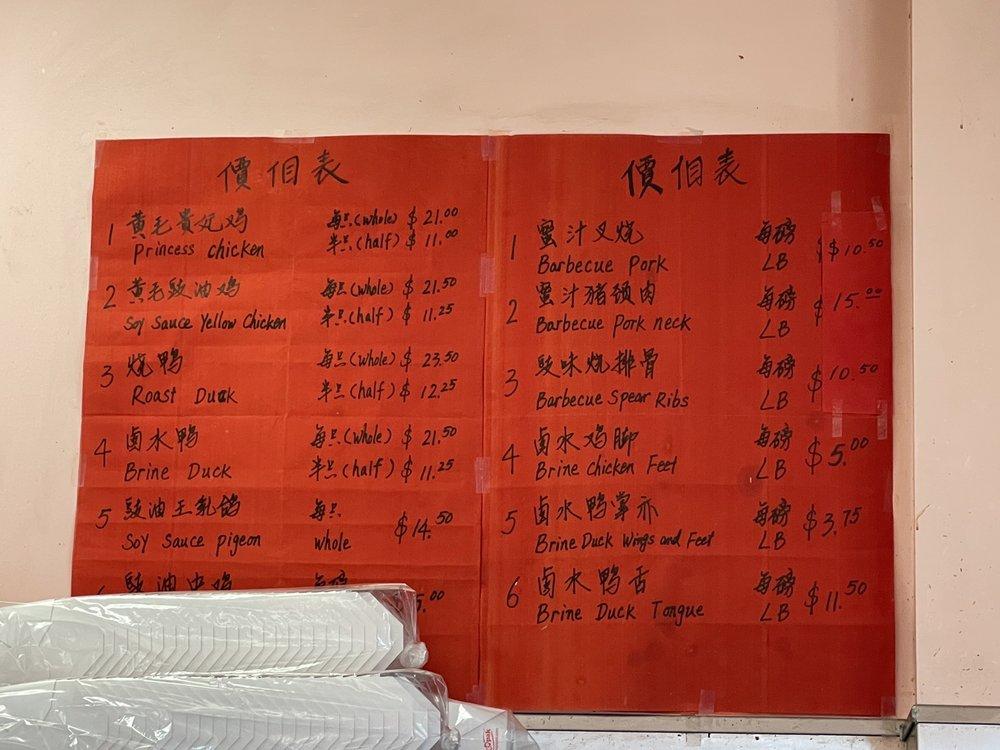 價伹表
1 黄毛貴妃鸡 每只(whole) $21.00
Princess chicken 半只(half) $11.00
2 黄毛豉油鸡 每只(whole) $21.50
Soy Sauce Yellow Chicken 半只(half) $11.25
3 烧鸭 每只(whole) $23.50
Roast Duck 半只(half) $12.25
4 卤水鸭 每只(whole) $21.50
Brine Duck 半只(half) $11.25
5 豉油王乳鸽 每只 $14.50
Soy Sauce pigeon whole
豉油 鸡 每磅 5.00
價伹表
1 蜜汁叉烧 每磅 $10.50
Barbecue Pork LB
2 蜜汁猪颈肉 每磅 $15.00
Barbecue Pork neck LB
3 豉味烧排骨 每磅 $10.50
Barbecue Spear Ribs LB
4 卤水鸡脚 每磅 $5.00
Brine chicken Feet LB
5 卤水鸭掌亦 每磅 $3.75
Brine Duck Wings and Feet LB
6 卤水鸭舌 每磅 $11.50
Brine Duck Tongue LB